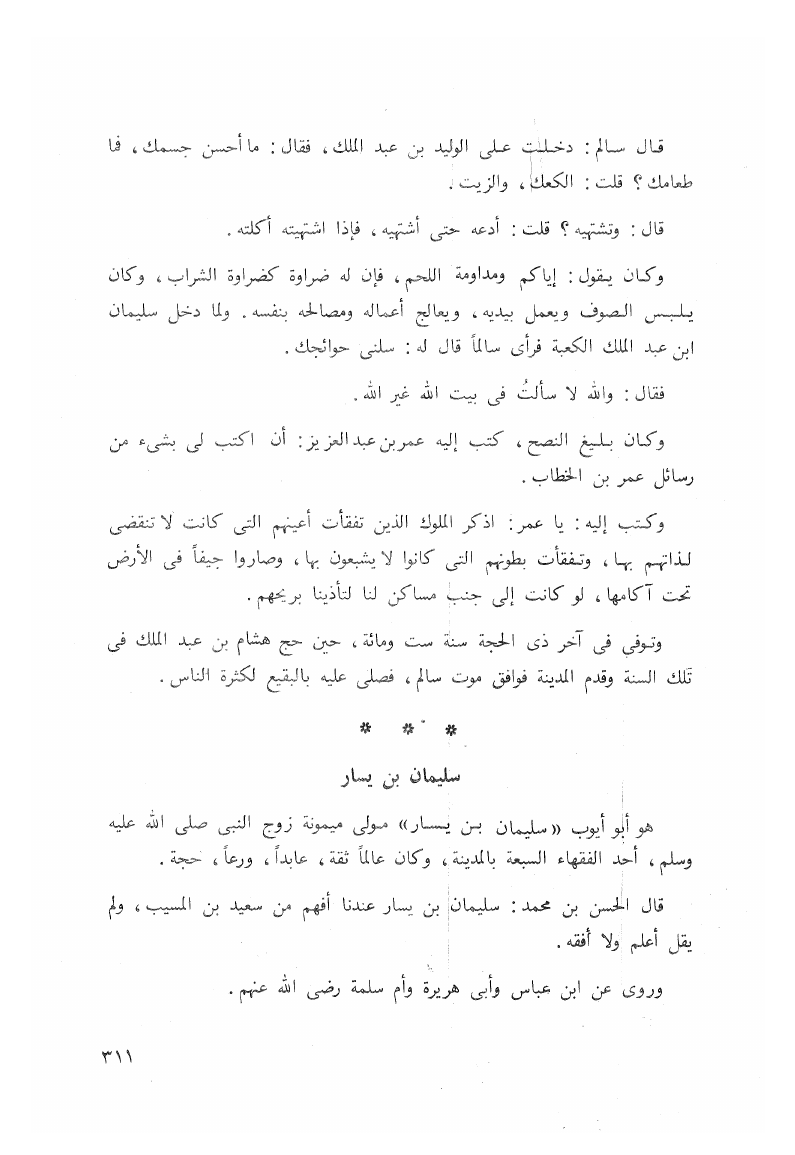 قال سالم : دخلت على الوليد بن عبد الملك ، فقال : ما أحسن جسمك ، فما
طعامك ؟ قلت : الكعك ، والزيت .
قال : وتشتهيه ؟ قلت : أدعه حتى أشتهيه ، فإذا اشتهيته أكلته .
وكان يقول : إياكم ومداومة اللحم ، فإن له ضراوة كضراوة الشراب ، وكان
يلبس الصوف ويعمل بيديه ، ويعالج أعماله ومصالحه بنفسه . ولما دخل سليمان
ابن عبد الملك الكعبة فرأى سالماً قال له : سلنى حوائجك .
فقال : والله لا سألتُ فى بيت الله غير الله .
وكان بليغ النصح ، كتب إليه عمر بن عبد العزيز : أن اكتب لى بشىء من
رسائل عمر بن الخطاب .
وكتب إليه : يا عمر : اذكر الملوك الذين تفقأت أعينهم التى كانت لا تنقضى
لذاتهم بها ، وتفقأت بطونهم التى كانوا لا يشبعون بها ، وصاروا جيفاً فى الأرض
تحت آكامها ، لو كانت إلى جنب مساكن لنا لتأذينا بريحهم .
وتوفي فى آخر ذى الحجة سنة ست ومائة ، حين حج هشام بن عبد الملك فى
تلك السنة وقدم المدينة فوافق موت سالم ، فصلى عليه بالبقيع لكثرة الناس .
* * *
سليمان بن يسار
هو أبو أيوب «سليمان بن يسار» مولى ميمونة زوج النبى صلى الله عليه
وسلم ، أحد الفقهاء السبعة بالمدينة ، وكان عالماً ثقة ، عابداً ، ورعاً ، حجة .
قال الحسن بن محمد : سليمان بن يسار عندنا أفهم من سعيد بن المسيب ، ولم
يقل أعلم ولا أفقه .
وروى عن ابن عباس وأبى هريرة وأم سلمة رضى الله عنهم .
٣١١